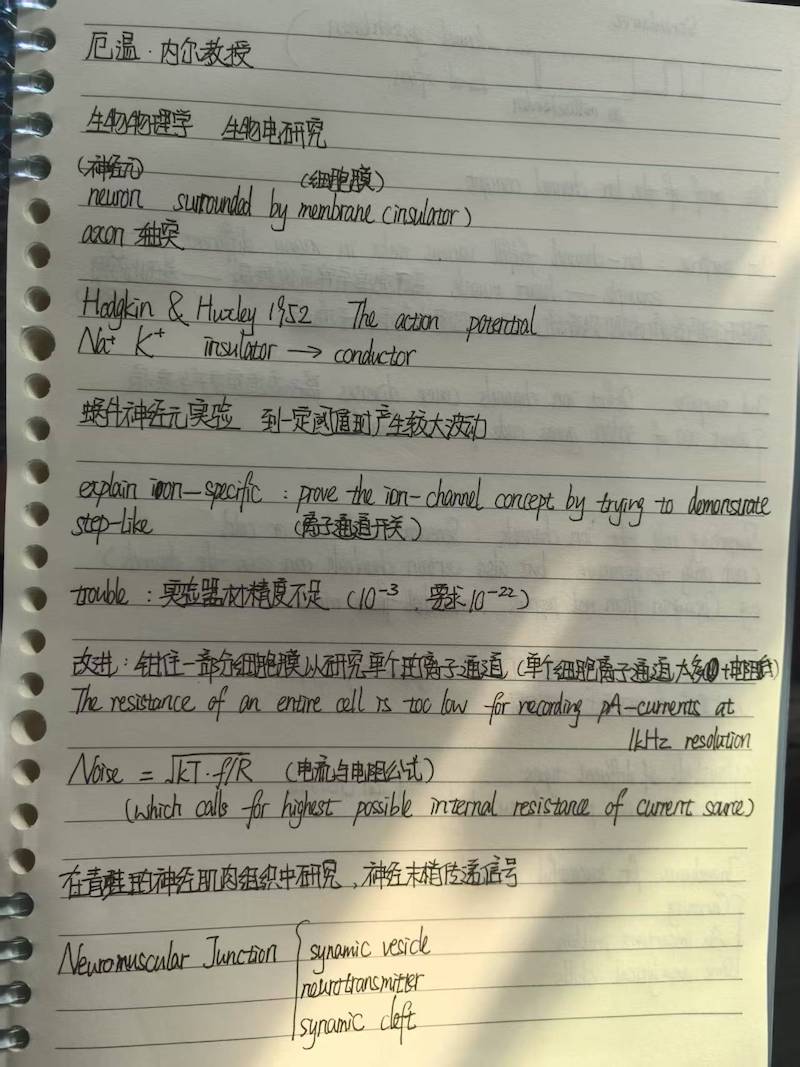 厄温·内尔教授
生物物理学 生物电研究
(神经元) (细胞膜)
neuron surrounded by membrane (insulator)
axon 轴突
Hodgkin & Huxley 1952 The action potential
Na+ K+ insulator → conductor
蜗牛神经元实验 到一定阈值时产生较大波动
explain ion-specific : prove the ion-channel concept by trying to demonstrate
step-like (离子通道开关)
trouble : 实验器材精度不足 (10⁻³, 要求 10⁻²²)
改进: 钳住一部分细胞膜以研究单个的离子通道 (单个细胞离子通道太多
The resistance of an entire cell is too low for recording pA-currents at
1kHz resolution
Noise = √kT·f/R (电流与电阻公式)
(which calls for highest possible internal resistance of current source)
在青蛙的神经肌肉组织中研究,神经末梢传递信号
Neuromuscular Junction { synamic vesicle
neurotransmitter
synamic cleft